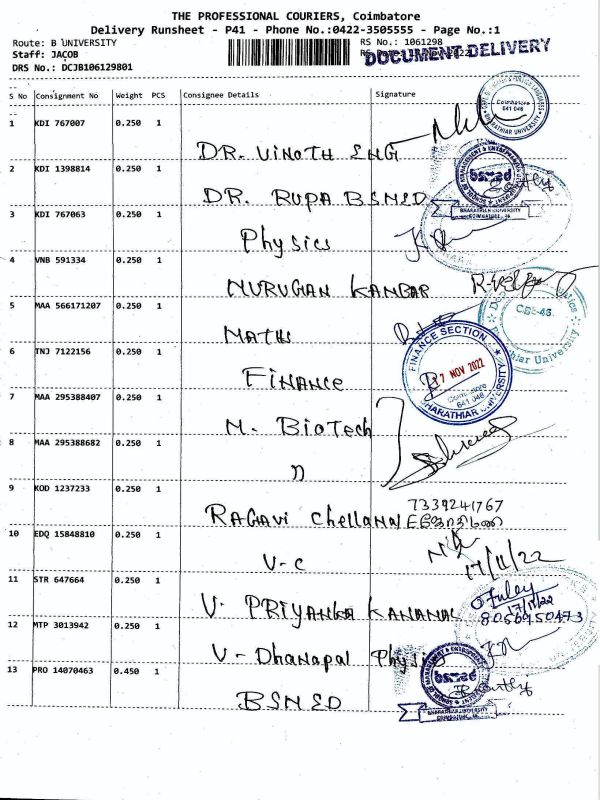 THE PROFESSIONAL COURIERS, Coimbatore
Delivery Runsheet - P41 - Phone No.:0422-3505555 - Page No.:1
Route: B UNIVERSITY
RS No.: 1061298
Staff: JACOB
DOCUMENT DELIVERY
DRS No.: DCJB106129801
S No Consignment No Weight PCS Consignee Details Signature
1 KDI 767007 0.250 1
DR. VINOTH ENG
Coimbatore
641 046
BHARATHIAR UNIVERSITY
2 KDI 1398814 0.250 1
DR. RUPA BSMED
bsmed
BHARATHIAR UNIVERSITY
COIMBATORE - 46
3 KDI 767063 0.250 1
Physics
4 VNB 591334 0.250 1
MURUGAN KANBAR
5 MAA 566171207 0.250 1
MATHS
CBE-46
Bharathiar University
6 TNJ 7122156 0.250 1
FINANCE
FINANCE SECTION
17 NOV 2022
Coimbatore
641 046
BHARATHIAR UNIVERSITY
7 MAA 295388407 0.250 1
M. BioTech
8 MAA 295388682 0.250 1
n
9 KOD 1237233 0.250 1
RAGAVI Chellamal
7339241767
10 EDQ 15848810 0.250 1
V-C
17/11/22
11 STR 647664 0.250 1
V. PRIYANKA KANAMAL
17/11/22
8056950473
12 MTP 3013942 0.250 1
V- Dhanapal Physics
13 PRO 14070463 0.450 1
BSMED
bsmed